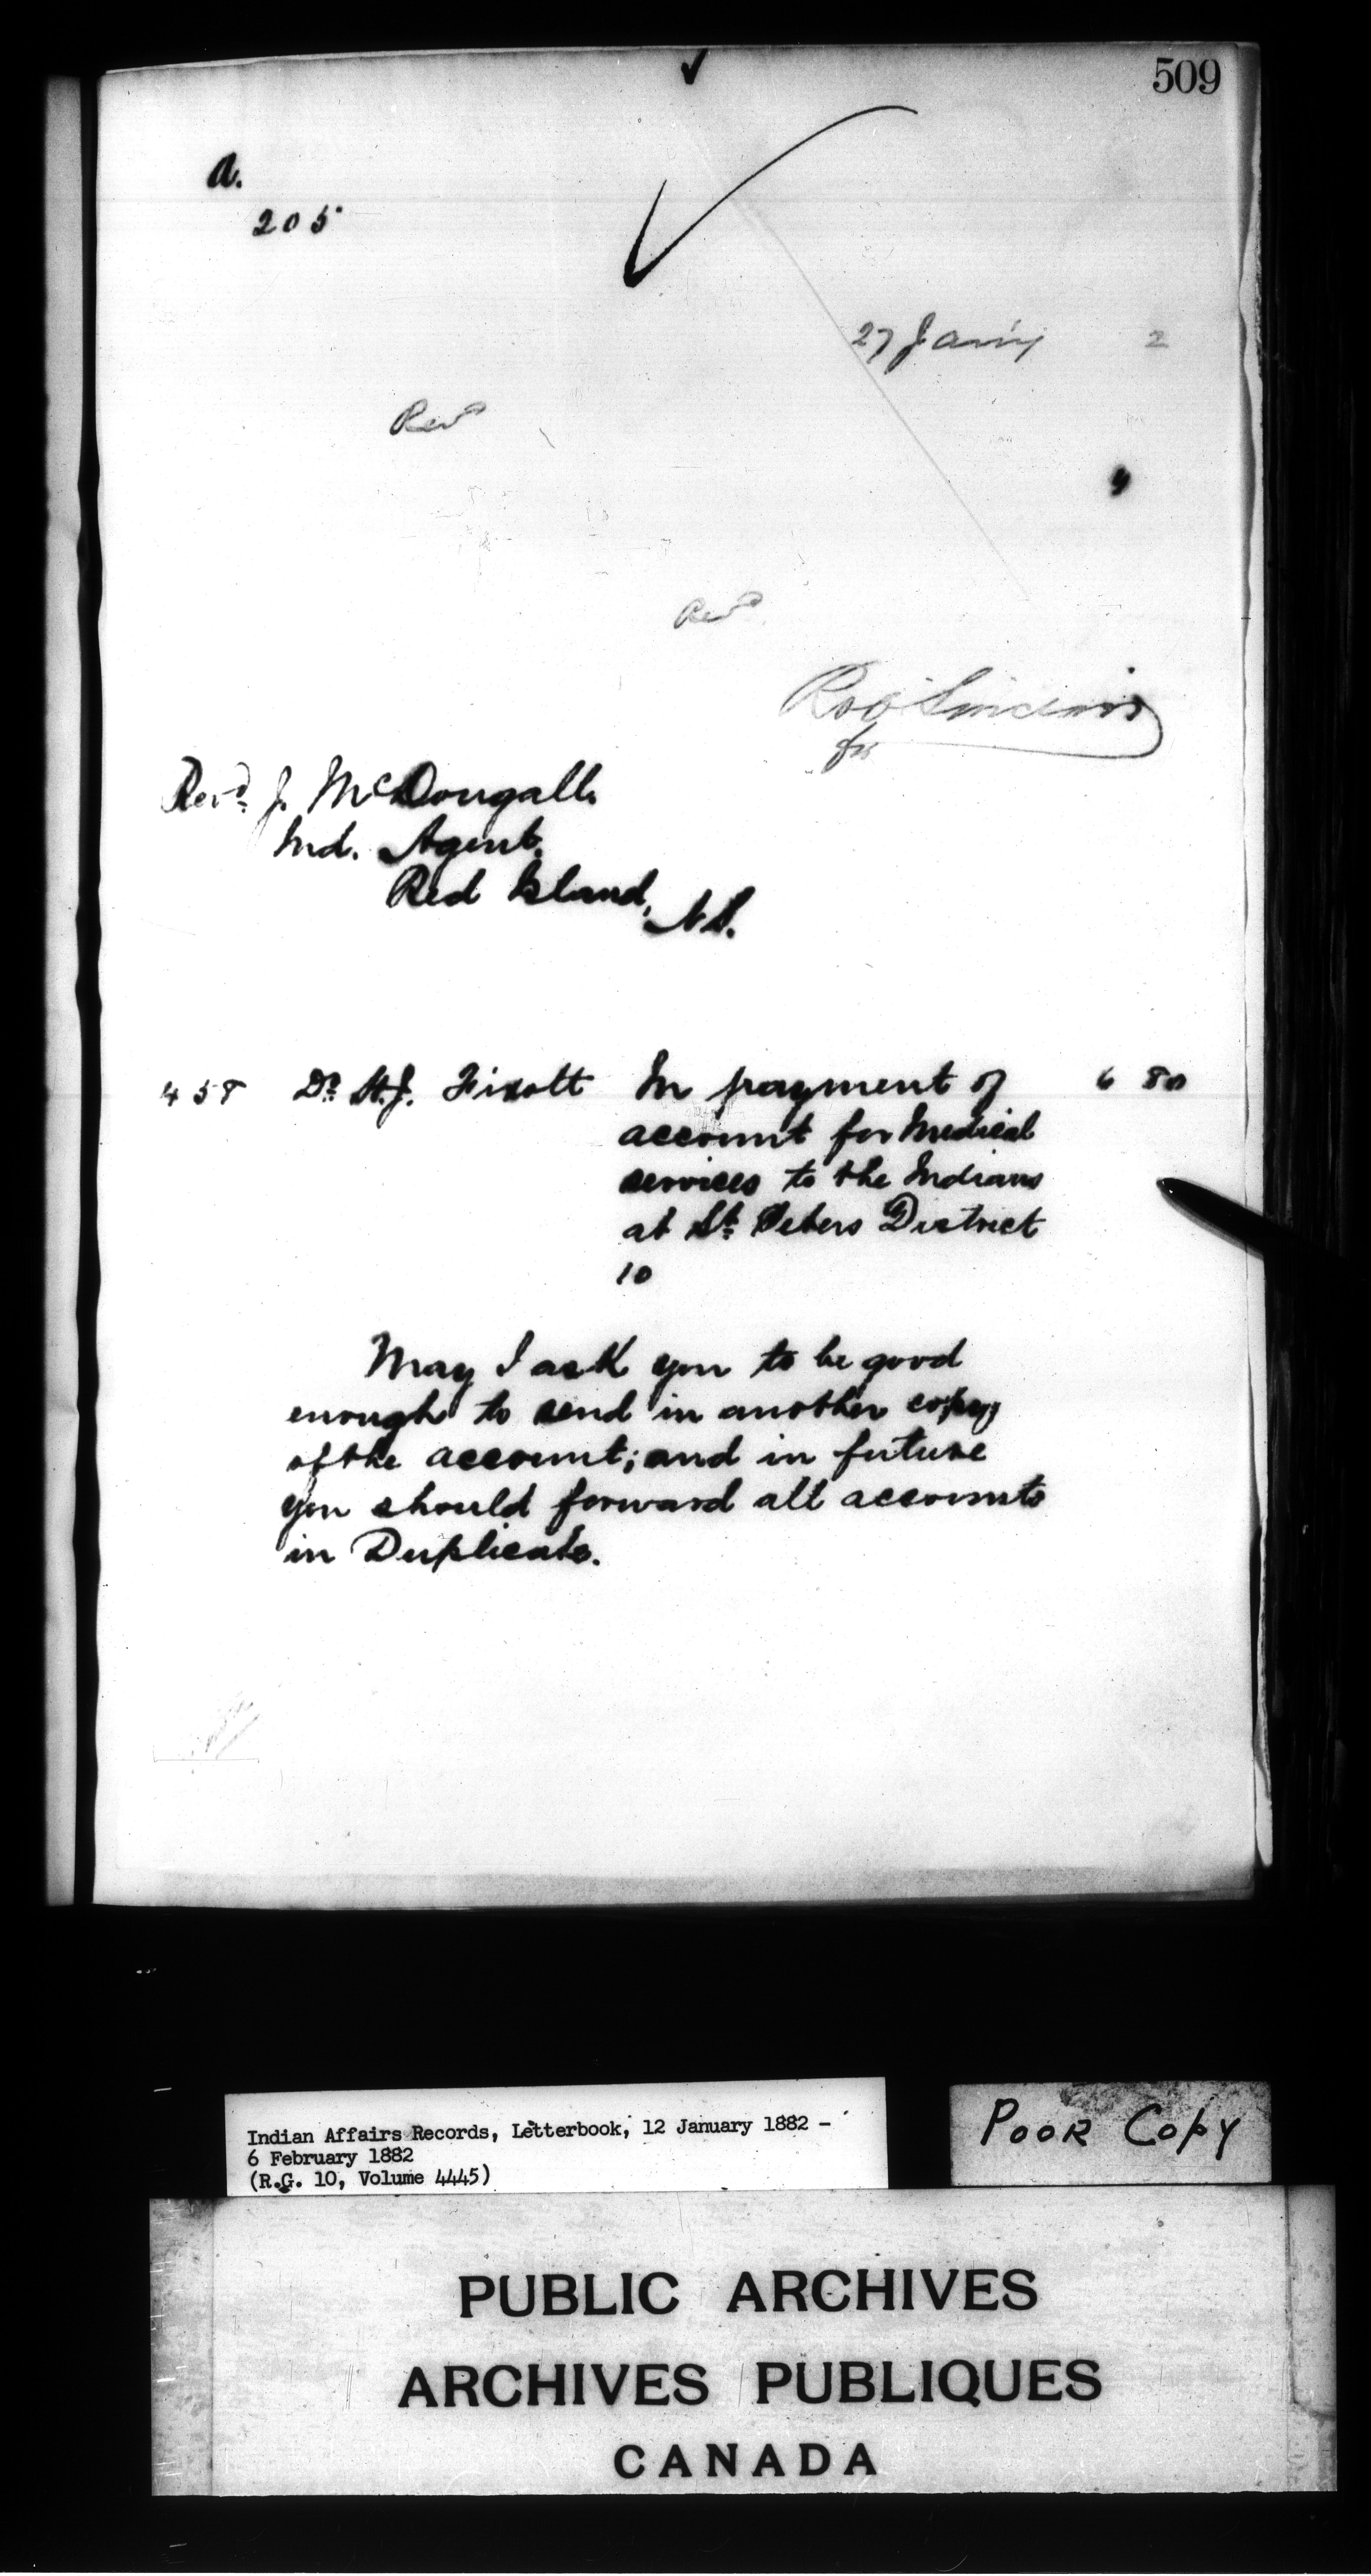 509
A.
205
27 Jan'y 2
Revd
Revd
Rob Sinclair
for
Revd. J. McDougall.
Ind. Agent.
Red Island,
N.S.
458 Dr. H.J. Fixott In payment of 6 80
account for Medical
services to the Indians
at St. Peters District
10
May I ask you to be good
enough to send in another copy
of the account; and in future
you should forward all accounts
in Duplicate.
Indian Affairs Records, Letterbook, 12 January 1882 -
6 February 1882
(R.G. 10, Volume 4445)
POOR COPY
PUBLIC ARCHIVES
ARCHIVES PUBLIQUES
CANADA